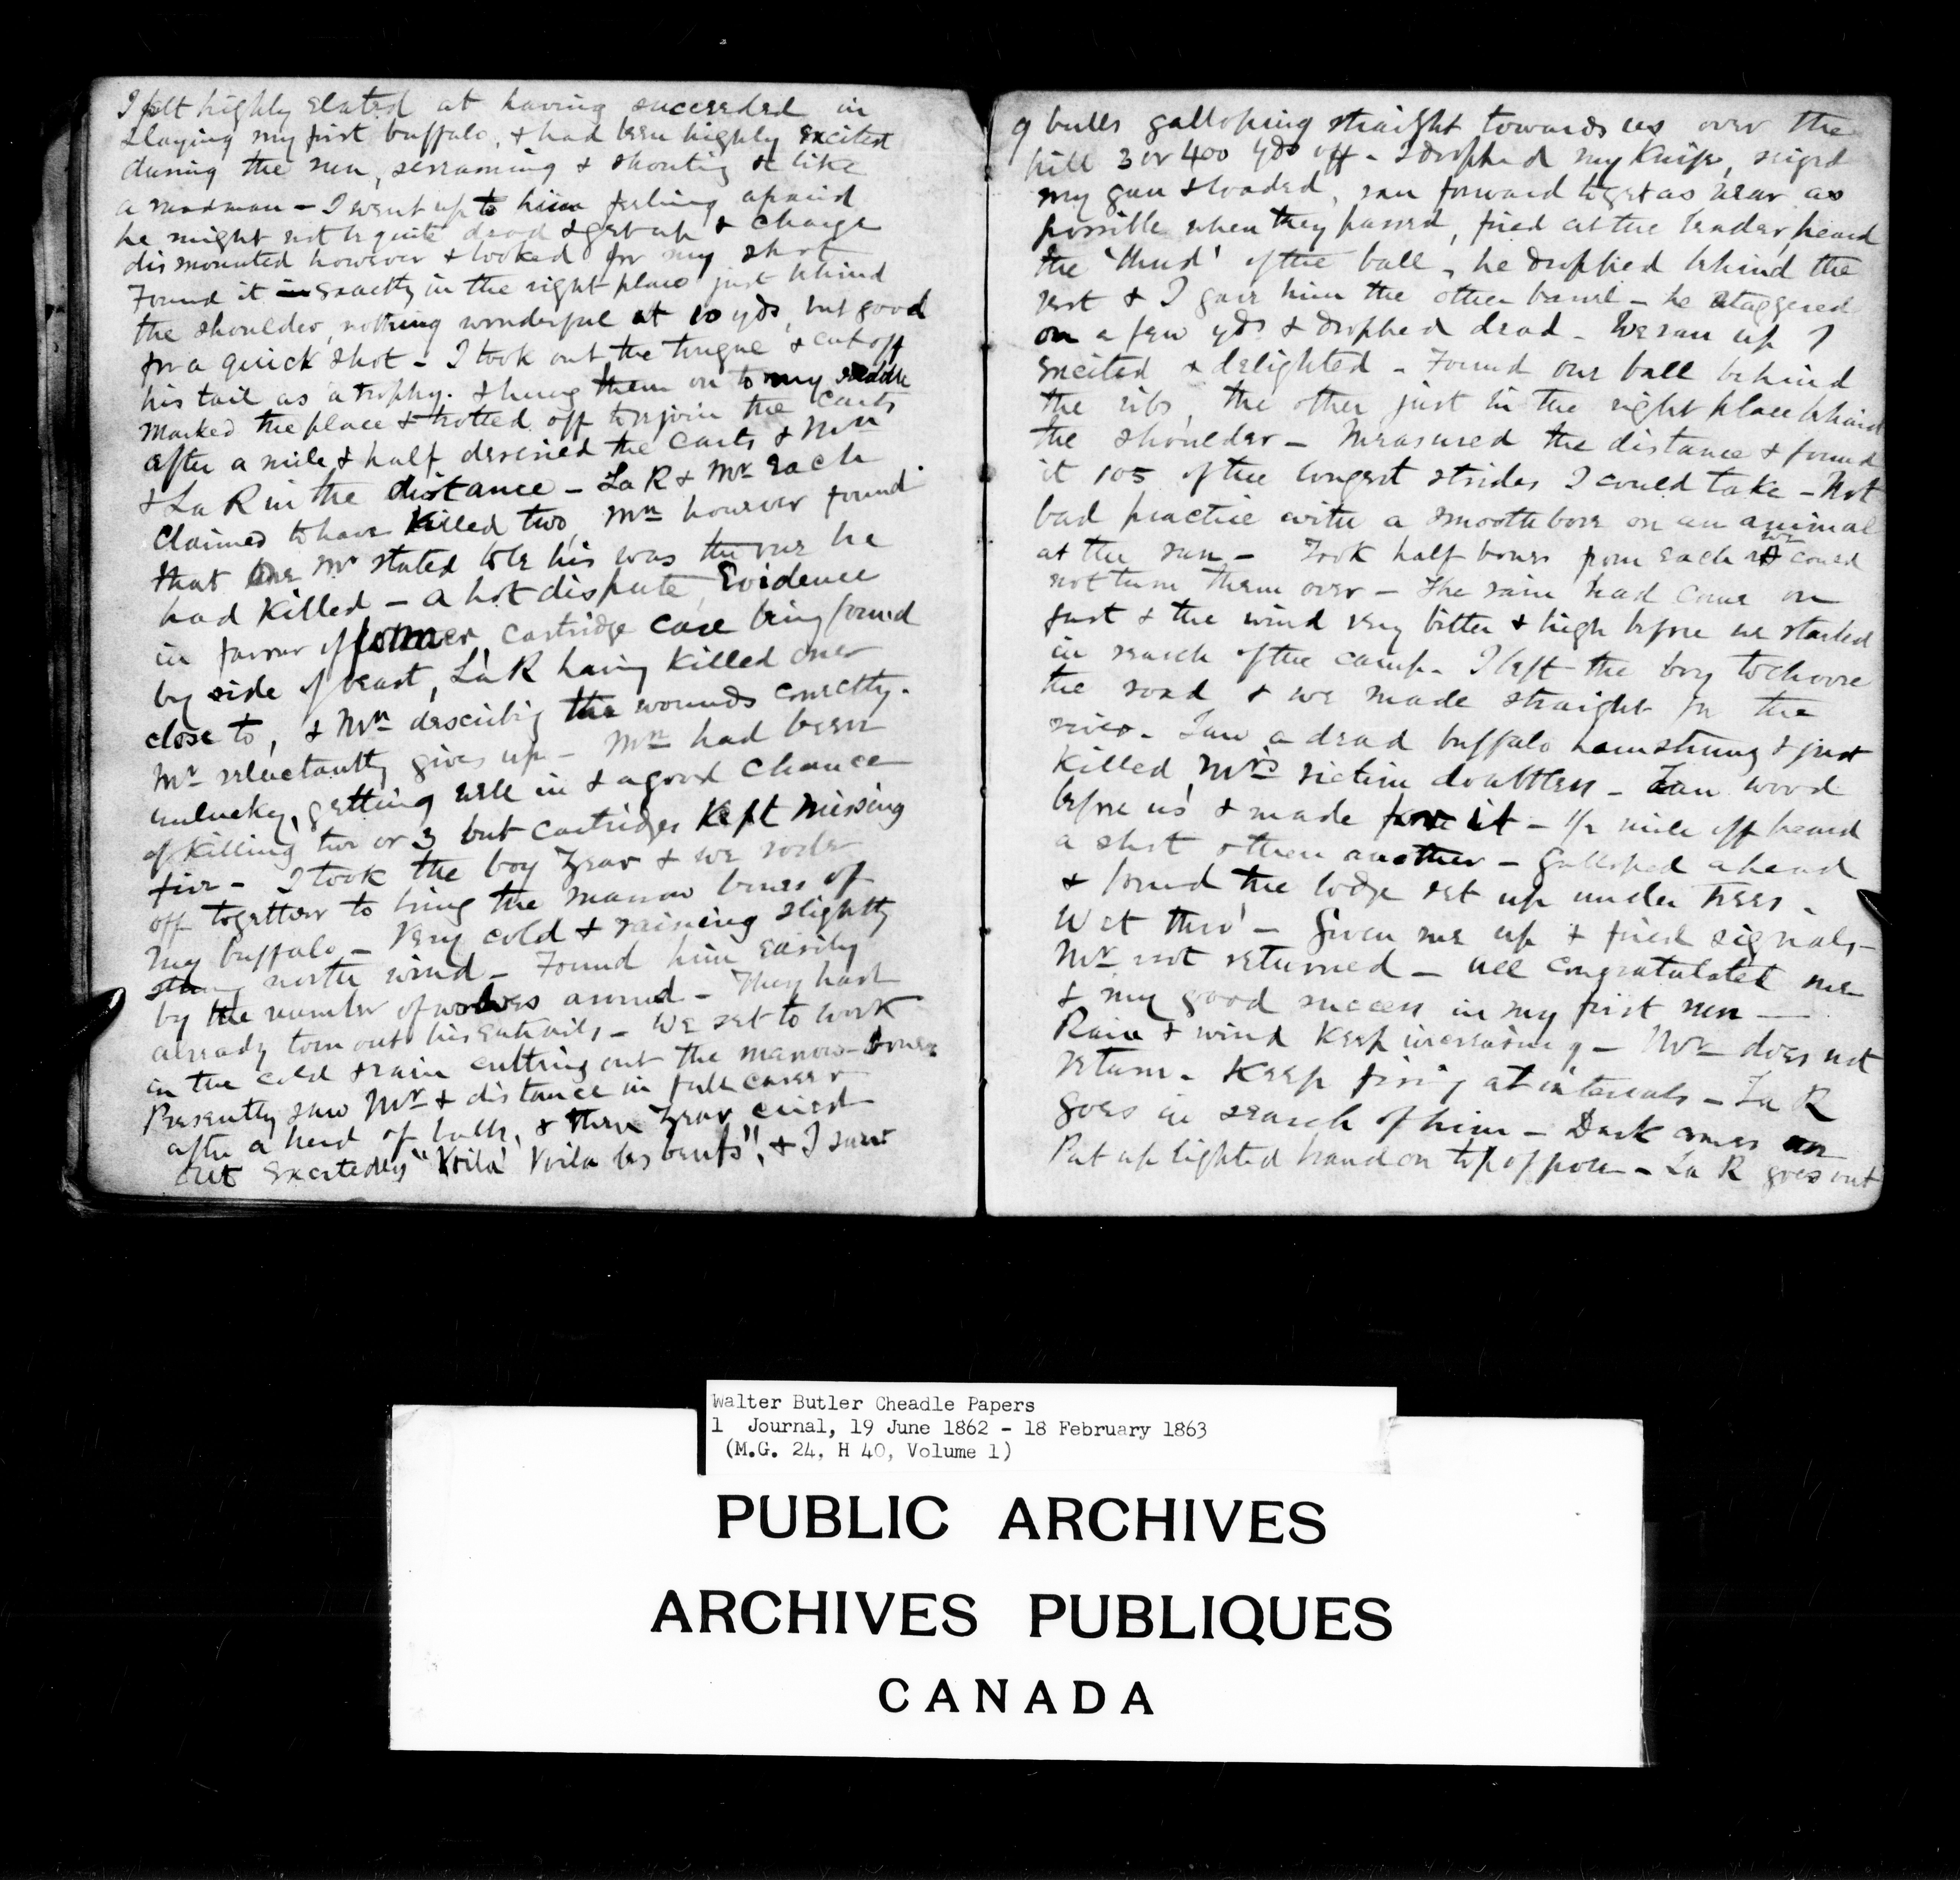 I felt highly elated at having succeeded in
slaying my first buffalo, & had been highly excited
during the run, screaming & shouting & like
a madman – I went up to him feeling afraid
he might not be quite dead & get up & charge
dismounted however & looked for my shot
Found it in exactly in the right place just behind
the shoulder, nothing wonderful at 10 yds, but good
for a quick shot – I took out the tongue & cut off
his tail as a trophy. & hung them on to my saddle
marked the place & trotted off to rejoin the carts
after a mile & half descried the carts & Mn
& La R in the distance – La R & Mr each
claimed to have killed two, Mn however found
that one Mr stated to be his was the one he
had killed – a hot dispute, Evidence
in favour of former, cartridge case being found
by side of beast, La R having killed ones
close to, & Mn describing the wounds correctly.
Mr reluctantly gives up – Mn had been
unlucky, getting well in & a good chance
of killing two or 3 but cartridges kept missing
fire – I took the boy Zear & we rode
off together to bring the marrow bones of
my buffalo – Very cold & raining slightly
strong north wind – Found him easily
by the number of wolves around – They had
already torn out his entrails – We set to work
in the cold & rain cutting out the marrow-bones
Presently saw Mr & distance in full career
after a herd of bulls, & then Zear cried
out excitedly "Voila' Voila les beufs", & I saw
9 bulls galloping straight towards us over the
hill 3 or 400 yds off – I dropped my knife, seized
my gun & loaded, ran forward to get as near as
possible when they passed, fired at the leader, heard
the 'thud' of the ball, he dropped behind the
rest & I gave him the other barrel – he staggered
on a few yds & dropped dead – We ran up
excited & delighted – Found one ball behind
the ribs, the other just in the right place behind
the shoulder – Measured the distance & found
it 105 of the longest strides I could take – Not
bad practice with a smooth bore on an animal
at the run – Took half bones from each as we could
not turn them over – The rain had come on
fast & the wind very bitter & high before we started
in search of the camp. I left the boy to choose
the road & we made straight for the
river. Saw a dead buffalo hamstrung & just
killed, Mr's victim doubtless – Saw wood
before us & made for it – 1/2 mile off heard
a shot & then another – Galloped ahead
& found the lodge set up under trees.
Wet thro' – Given me up & fired signals,–
Mr not returned – all congratulated me
& my good success in my first run –
Rain & wind keep increasing – Mr does not
return. Keep firing at intervals – La R
goes in search of him – Dark comes on
Put up lighted brand on top of pole – La R goes out
Walter Butler Cheadle Papers
1 Journal, 19 June 1862 - 18 February 1863
(M.G. 24, H 40, Volume 1)
PUBLIC ARCHIVES
ARCHIVES PUBLIQUES
CANADA